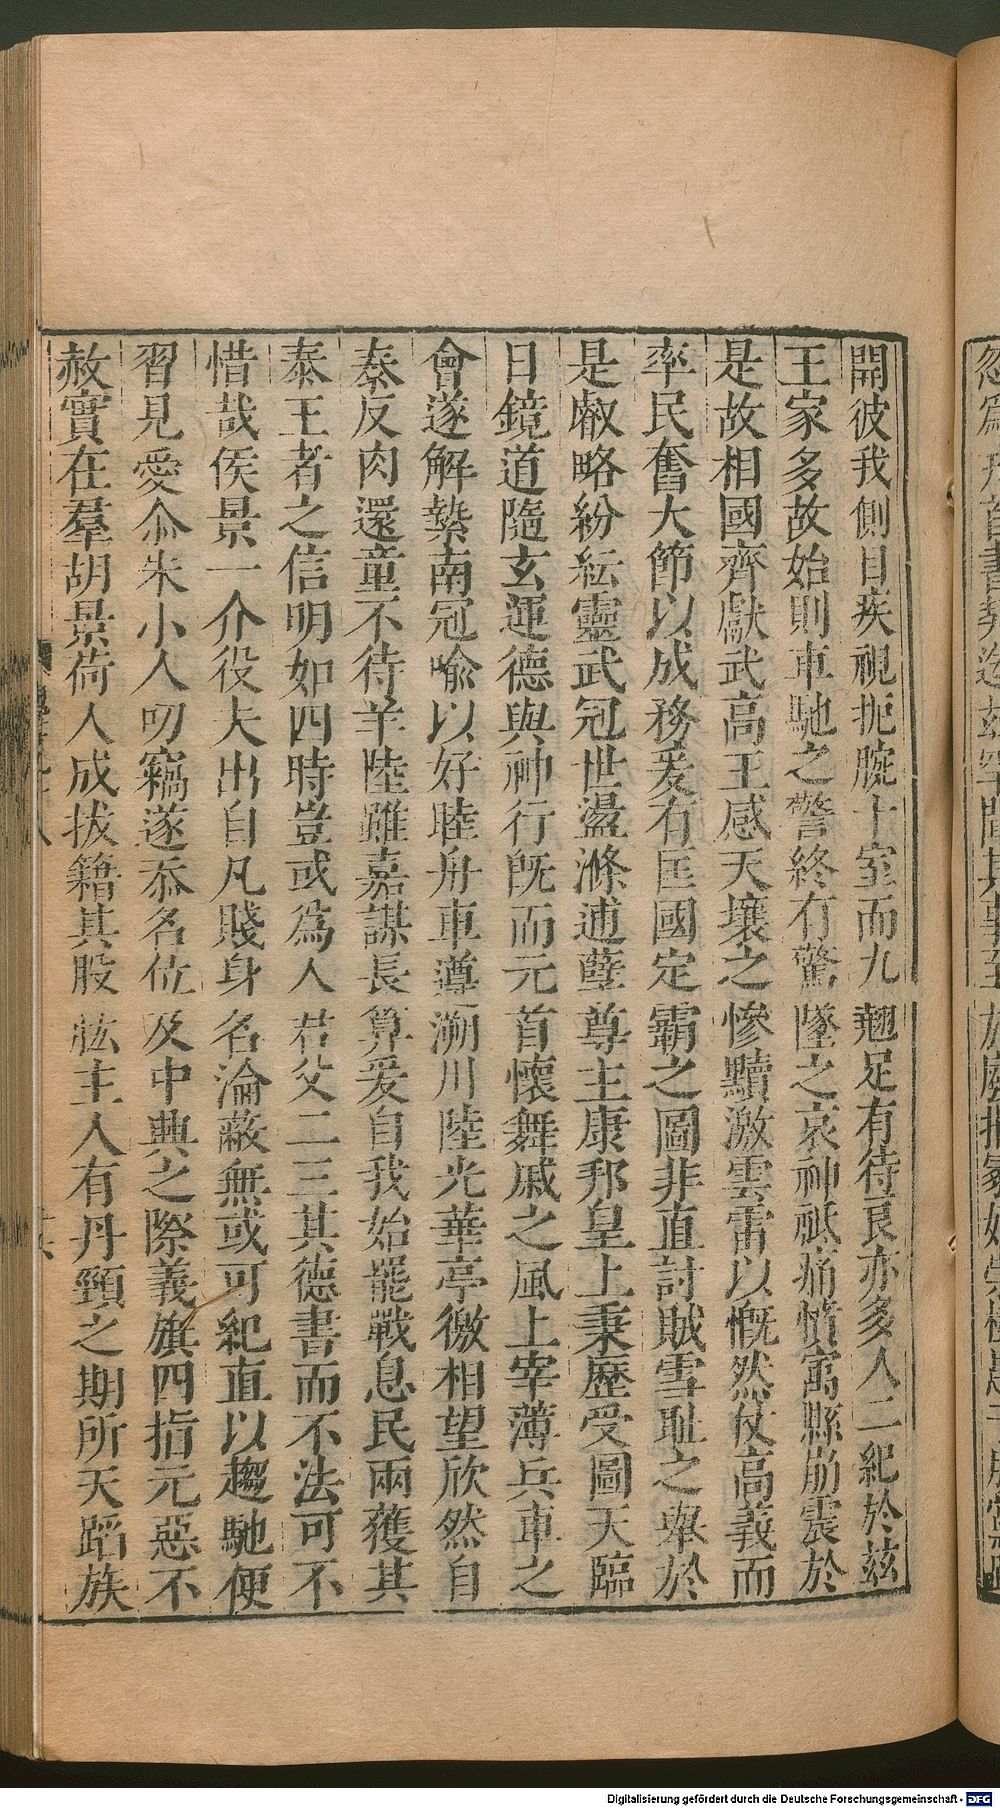 開彼我側目疾視扼腕十室而九翹足有待良亦多人二紀於茲
王家多故始則車馳之警終有驚墜之哀神祗痛憤寓縣崩震於
是故相國齊獻武高王感天壤之慘黷激雲雷以慨然仗高義而
率民奮大節以成務爰有匡國定霸之圖非直討賊雪耻之舉於
是叡略紛紜靈武冠世盪滌逋孽尊主康邦皇上秉歷受圖天臨
日鏡道隨玄運德與神行旣而元首懷舞戚之風上宰薄兵車之
會遂解縶南冠喻以好睦舟車遵溯川陸光華亭徼相望欣然自
泰反肉還童不待羊陸雖嘉謀長算爰自我始罷戰息民兩獲其
泰王者之信明如四時豈或爲人君父二三其德書而不法可不
惜哉侯景一介役夫出自凡賤身名淪蔽無或可紀直以趨馳便
習見愛尒朱小人叨竊遂忝名位及中興之際義旗四指元惡不
赦實在羣胡景荷人成拔籍其股肱主人有丹頸之期所天蹈族
Digitalisierung gefördert durch die Deutsche Forschungsgemeinschaft - DFG